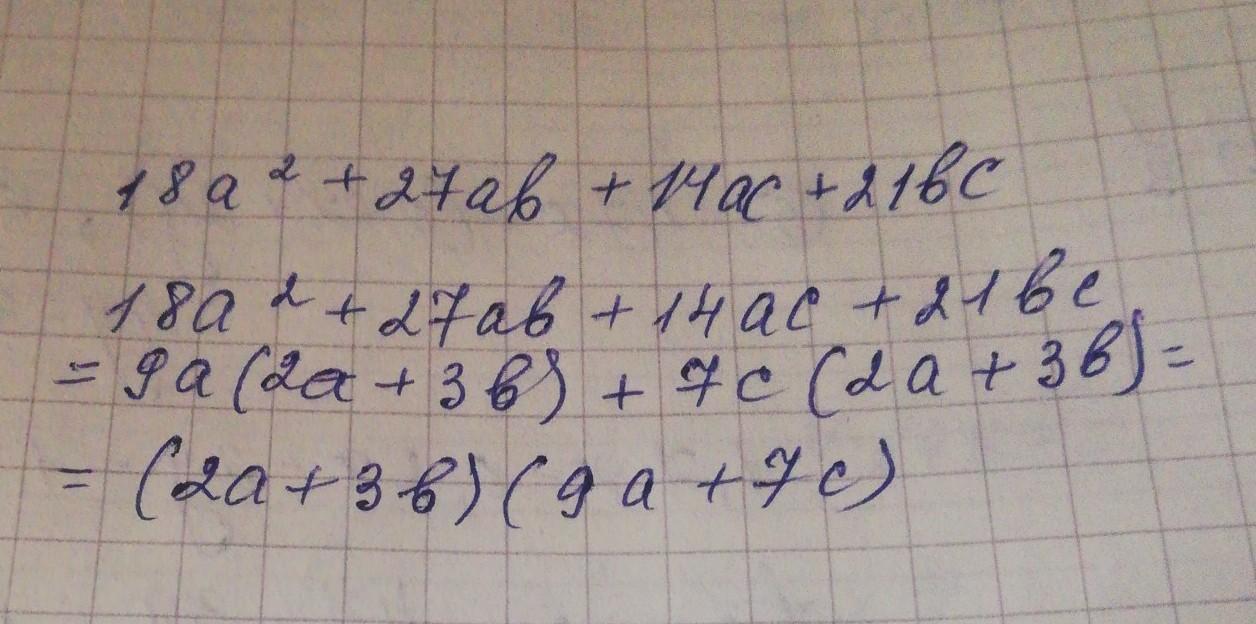 18a² + 27ab + 14ac + 21bc
18a² + 27ab + 14ac + 21bc
= 9a(2a + 3b) + 7c(2a + 3b) =
= (2a + 3b)(9a + 7c)